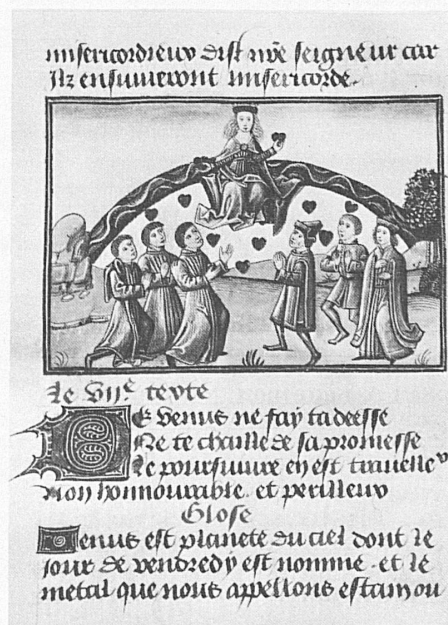 misericordieux dist nr̃e seigneur car
Ilz ensuiueront misericorde.
Le viie texte
De venus ne fay ta deesse
Ne te chaille de sa promesse
Le poursuiure en est trauelleux
Non honnourable. et perilleux
Glose
Venus est planete du ciel dont le
iour de vendredy est nomme. et le
metal que nous appellons estain ou